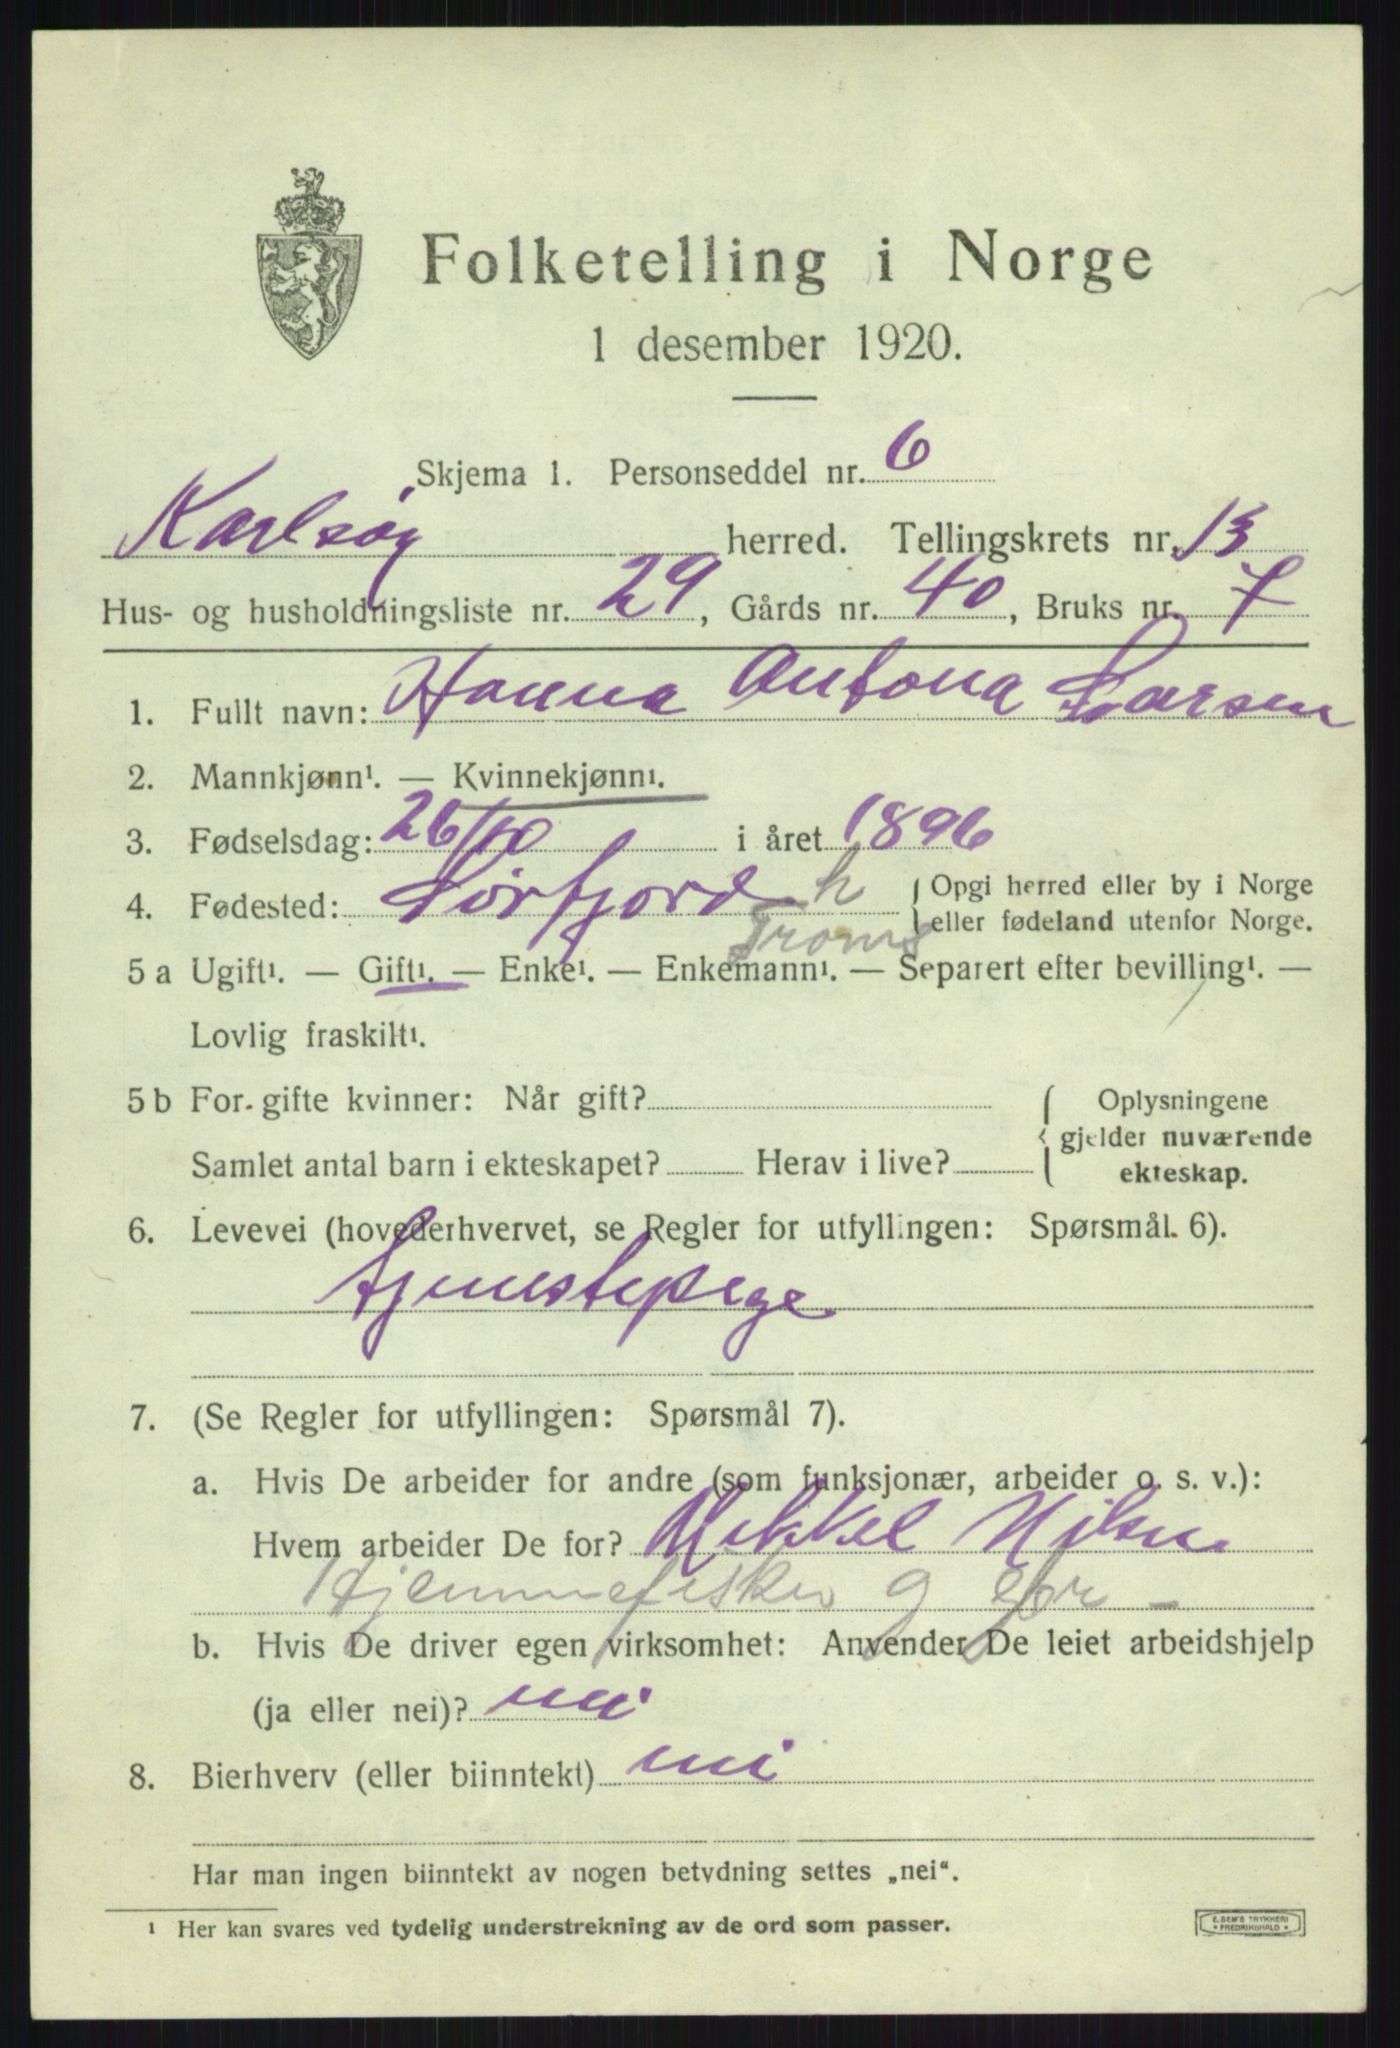 Folketelling i Norge
1 desember 1920.
Skjema 1. Personseddel nr. 6
Karlsøy herred. Tellingskrets nr. 13
Hus- og husholdningsliste nr. 29, Gårds nr. 40, Bruks nr. 7
1. Fullt navn: Hanna Antona Larsen
2. Mannkjønn¹. — Kvinnekjønn¹.
3. Fødselsdag: 26/10 i året 1896
4. Fødested: Sörfjord h { Opgi herred eller by i Norge
Troms eller fødeland utenfor Norge.
5 a Ugift¹. — Gift¹. — Enke¹. — Enkemann¹. — Separert efter bevilling¹. —
Lovlig fraskilt¹.
5 b For gifte kvinner: Når gift? { Oplysningene
gjelder nuværende
Samlet antal barn i ekteskapet? Herav i live? ekteskap.
6. Levevei (hovederhvervet, se Regler for utfyllingen: Spørsmål 6).
tjenestepige
7. (Se Regler for utfyllingen: Spørsmål 7).
a. Hvis De arbeider for andre (som funksjonær, arbeider o. s. v.):
Hvem arbeider De for? Mikkel Nilsen
Hjemmefisker g
b. Hvis De driver egen virksomhet: Anvender De leiet arbeidshjelp
(ja eller nei)? nei
8. Bierhverv (eller biinntekt) nei
Har man ingen biinntekt av nogen betydning settes „nei“.
¹ Her kan svares ved tydelig understrekning av de ord som passer.
E. SEM'S TRYKKERI
FREDRIKSHALD